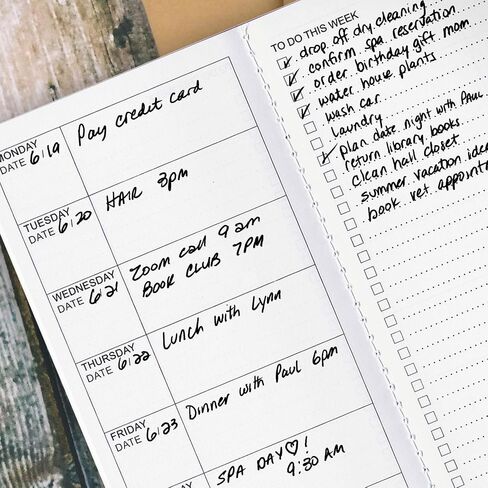 MONDAY
DATE 6/19
Pay credit card
TUESDAY
DATE 6/20
HAIR 3pm
WEDNESDAY
DATE 6/21
Zoom call 9am
BOOK CLUB 7PM
THURSDAY
DATE 6/22
Lunch with Lynn
FRIDAY
DATE 6/23
Dinner with Paul 6pm
SPA DAY♡!
9:30 AM
TO DO THIS WEEK
drop off dry cleaning
confirm spa reservation
order birthday gift mom
water house plants
wash car
laundry
plan date night with PAUL
return library books
clean hall closet
summer vacation idea
book vet appoint